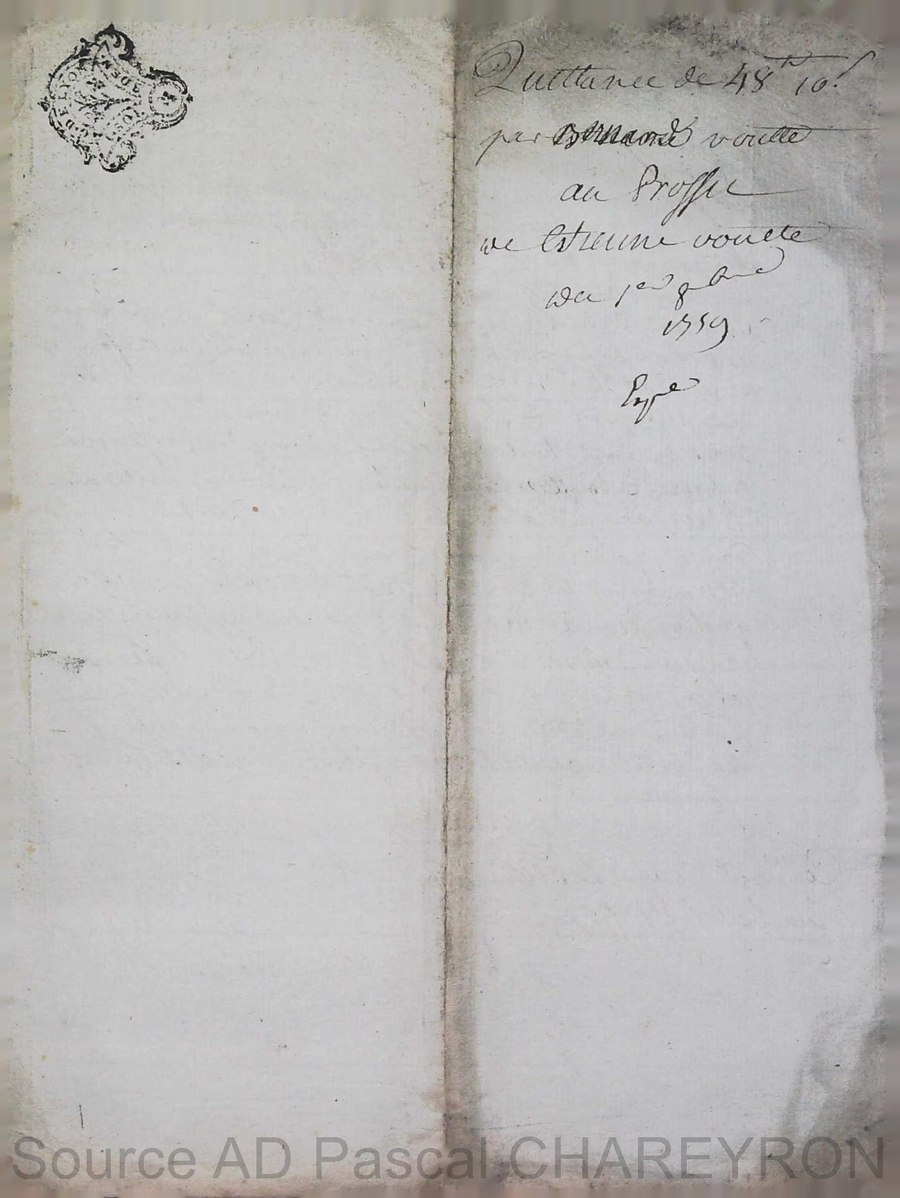 Quittance de 48# 10s
par Bernard voutte
au Proffit
de Estienne voutte
du 1er 8bre
1759
Expé
Source AD Pascal CHAREYRON